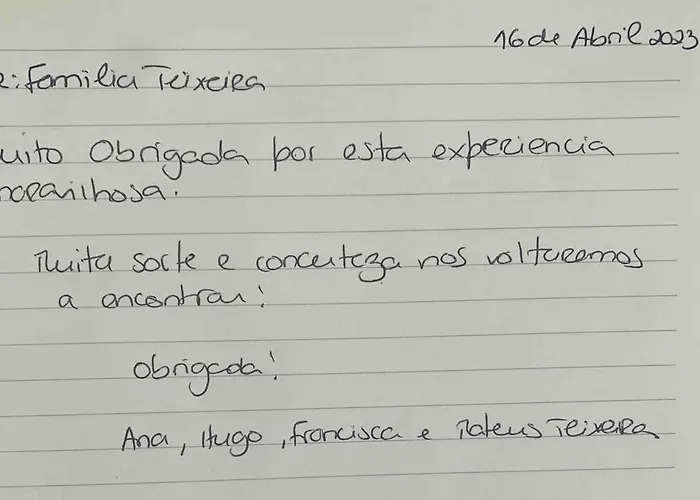 16 de Abril 2023
e: Familia Teixeira
uito Obrigada por esta experiencia
maravilhosa.
Muita sorte e concerteza nos volturemos
a encontrar!
Obrigada!
Ana, Hugo, Francisca e Mateus Teixeira